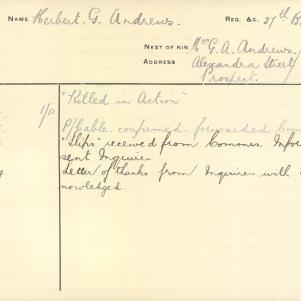 NAME Herbert. G. Andrews. REG. &C. 27th B
NEXT OF KIN Mrs G. A. Andrews.
ADDRESS Alexandra Street
Prospect.
"Killed in Action"
1/P P/Cable. confirmed. forwarded Com
"Slips" received from Comones. Info
sent Inquirer
Letter of thanks from Inquirer with
nowledged.